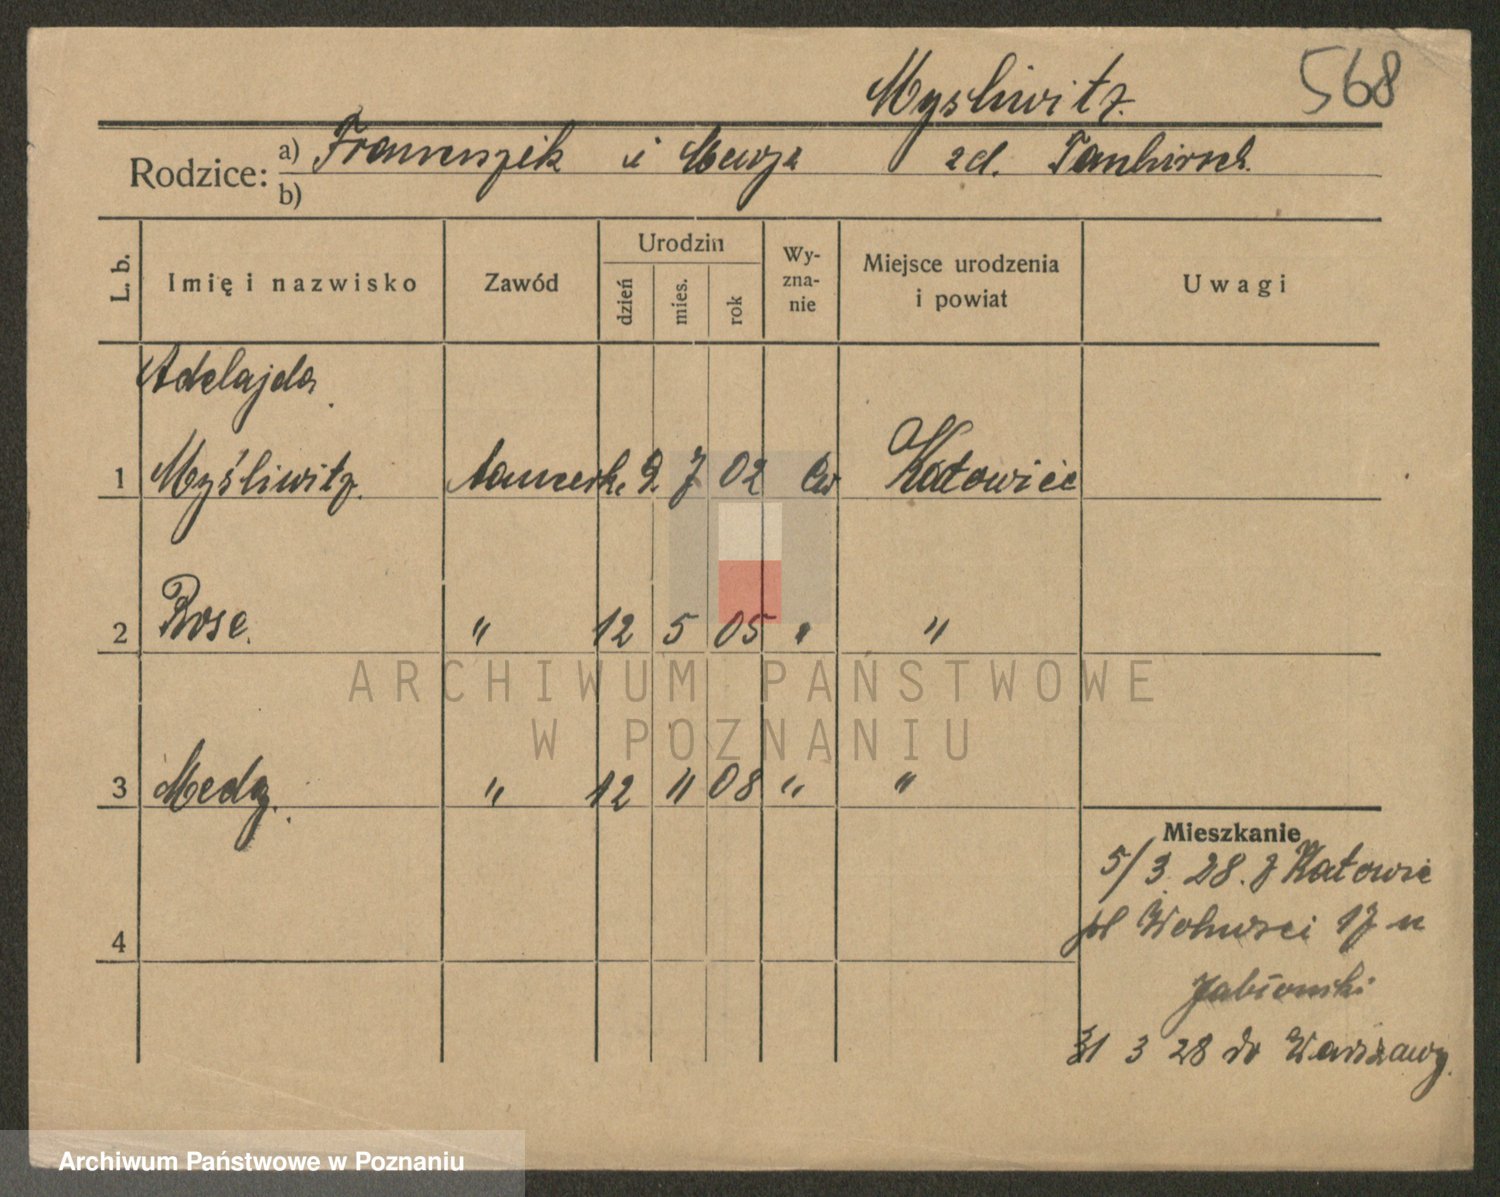 Mysliwitz. 568
Rodzice: a) Franciszek i zd.
b)
L. b. Imię i nazwisko Zawód Urodzin Wy-zna-nie Miejsce urodzenia i powiat Uwagi
dzień mies. rok
Adelajda.
1 Myśliwitz. 9. 7 02 Ew Katowice
2 Rose. " 12 5 05 " "
3 " 12 11 08 " "
4
Mieszkanie
5/3 28. z Katowic
pl Wolnosci 17 u
Jabłonski
31 3 28 do Warszawy.
ARCHIWUM PAŃSTWOWE
W POZNANIU
Archiwum Państwowe w Poznaniu